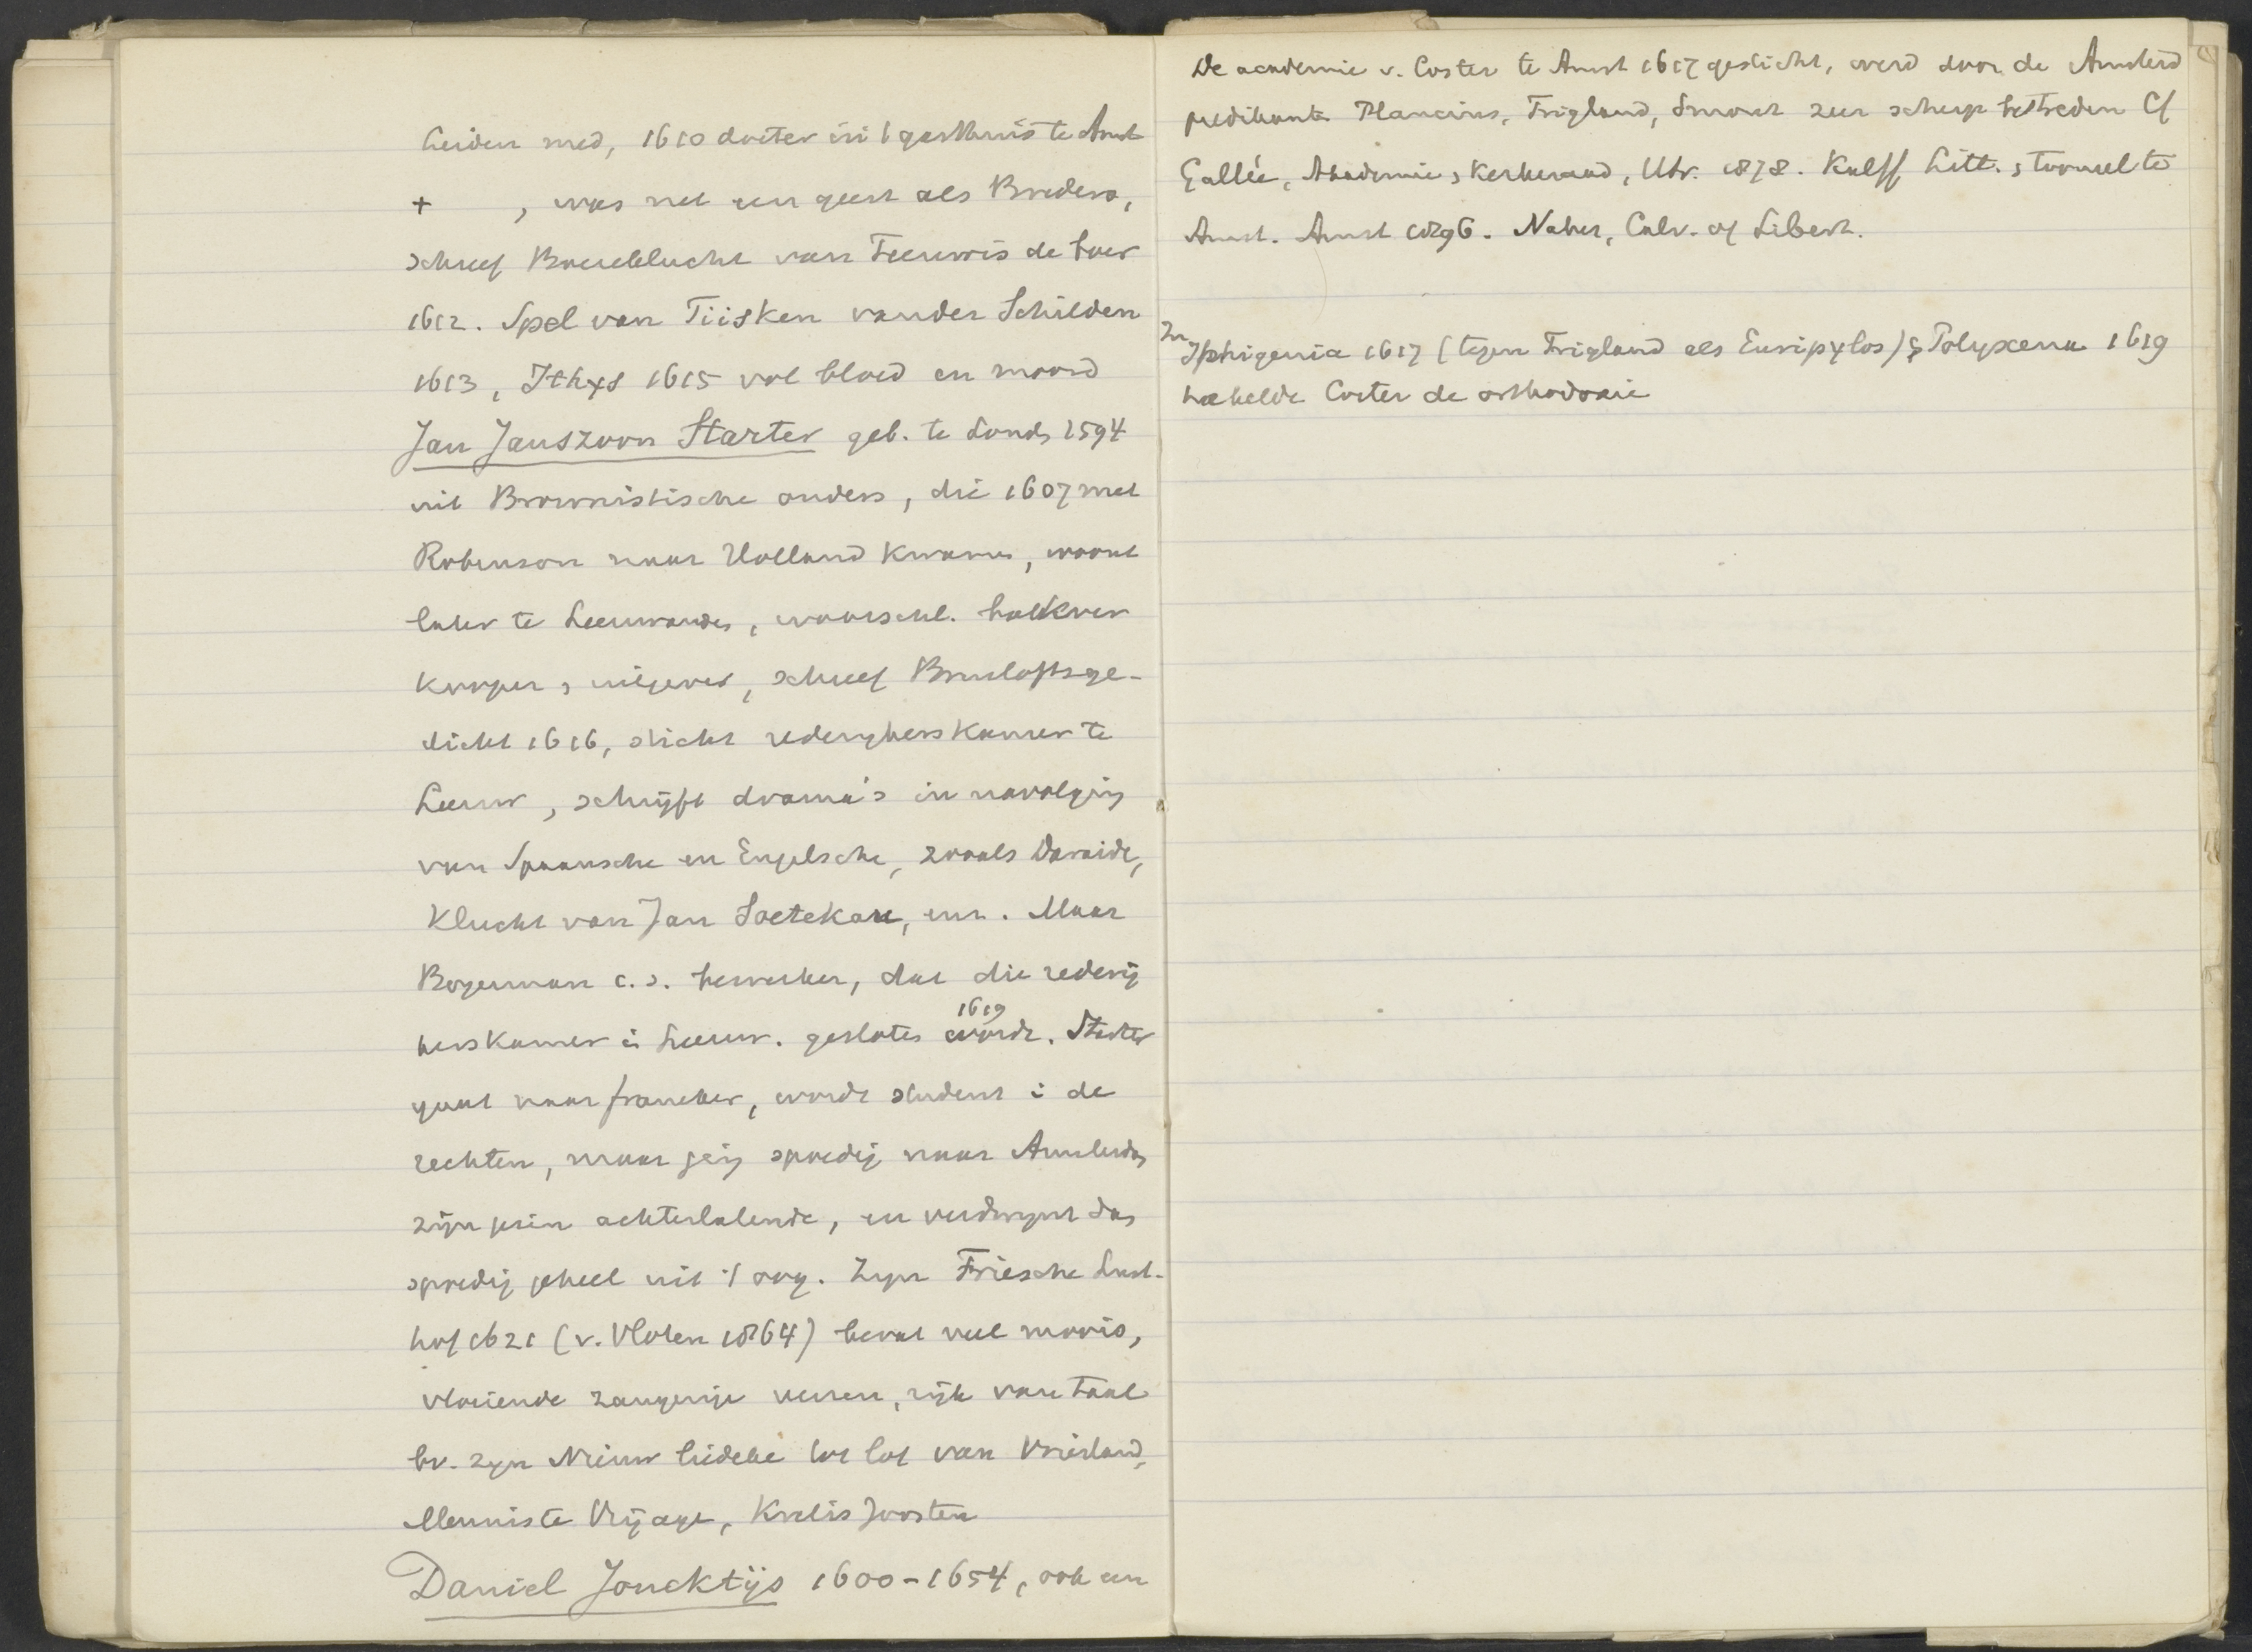 Leiden med, 1610 docter in 't gasthuis te Amst
+ , was net een geest als Bredero,
schreef Boereklucht van Teeuwis de boer
1612. Spel van Tiisken vander Schilden
1613, Ithys 1615 vol bloed en moord
Jan Janszoon Starter geb. te Lond, 1594
uit Brownistische ouders, die 1607 met
Robinson naar Holland kwame, woont
later te Leeuwarde, waarschl. boekver
kooper, uitgever, schreef Bruiloftsge-
dicht 1616, sticht rederijkerskamer te
Leeuw, schrijft drama's in navolging
van Spaansche en Engelsche, zooals Daraide,
Klucht van Jan Soetekau, enz. Maar
Bogerman c.s. bewerken, dat die rederij
kerskamer i Leeuw. geslote 1619 wordt. Starter
gaat naar franeker, wordt student i de
rechten, maar ging spoedig naar Amsterda,
zijn gezin achterlatende, en verdwynt da,
spoedig geheel uit 't oog. Zyn Friesche Lust-
hof 1621 (v. Vloten 1864) bevat veel moois,
vloeiende zangerige verzen, rijk van taal
bv. zyn Nieuw liedeke tot lof van Vriesland,
Menniste Vrijage, Krelis Joosten
Daniel Joncktijs 1600-1654, ook een
De academie v. Coster te Amst 1617 gesticht, werd door de Amsterd
predikante Plancius, Trigland, Smout zeer scherp bestreden Cf
Gallée, Akademie, Kerkeraad, Utr. 1878. Kalff Litt., tooneel te
Amst. Amst 1896. Naber, Calv. of Libert.
In Iphigenia 1617 (tegen Trigland als Euripylos) & Polyxena 1619
hekelde Coster de orthodoxie